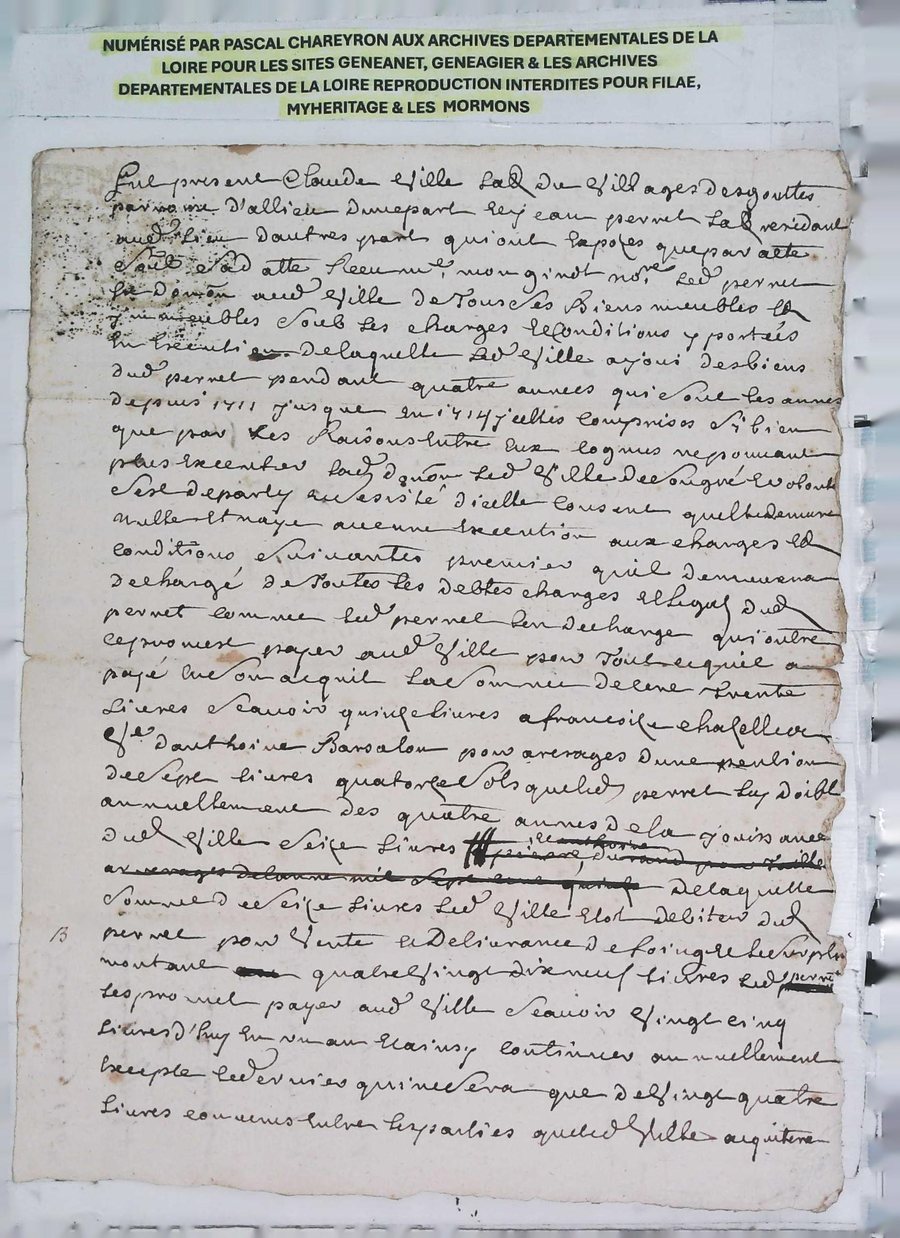 NUMÉRISÉ PAR PASCAL CHAREYRON AUX ARCHIVES DEPARTEMENTALES DE LA
LOIRE POUR LES SITES GENEANET, GENEAGIER & LES ARCHIVES
DEPARTEMENTALES DE LA LOIRE REPRODUCTION INTERDITES POUR FILAE,
MYHERITAGE & LES MORMONS
Fut present Claude Ville lab du Villages des gouttes
parroisse d'allieu dunepart et jean perret lab residant
aud lieu dautres part qui ont exposes que par acte
soub sa datte receu me mon girod nore led perret
fit donon aud Ville de tous ses biens meubles et
immeubles soub les charges et conditions y portées
en execution de laquelle led Ville a joui des biens
dud perret pendant quatre annees qui sont les annees
depuis 1711 jusque en 1714 icelles comprises si bien
que par les Raisons entre eux cognus ne pouvant
plus executter lad donon led Ville de son gré et volonté
sest departy dicelle consent quelle demeure
nulle et naye aucune execution aux charges et
conditions suivantes premier quil demeurera
dechargé de toutes les debtes charges et legat dud
perret comme led perret len decharge qui outre
ce promet payer aud Ville pour tout ce quil a
payé en son acquit la somme de cent trente
livres scavoir quinze livres a francoise chazelle
Ve danthoine Barsalon pour arerages dune pention
de sept livres quatorze sols que led perret luy doibt
annuellement des quatre annes de la jouissance
dud Ville seize livres
de laquelle
somme de seize livres led Ville etot debiteur dud
perret pour Vente et Deliurance de foing et le surplus
montant quatre Vingt dix neuf livres led perret
les promet payer aud Ville scavoir Vingt cinq
livres d'huy en un an et ainsy continuer annuellement
excepte led dernier qui ne sera que de Vingt quatre
livres convenus entre les parties que led Ville acquitera
B